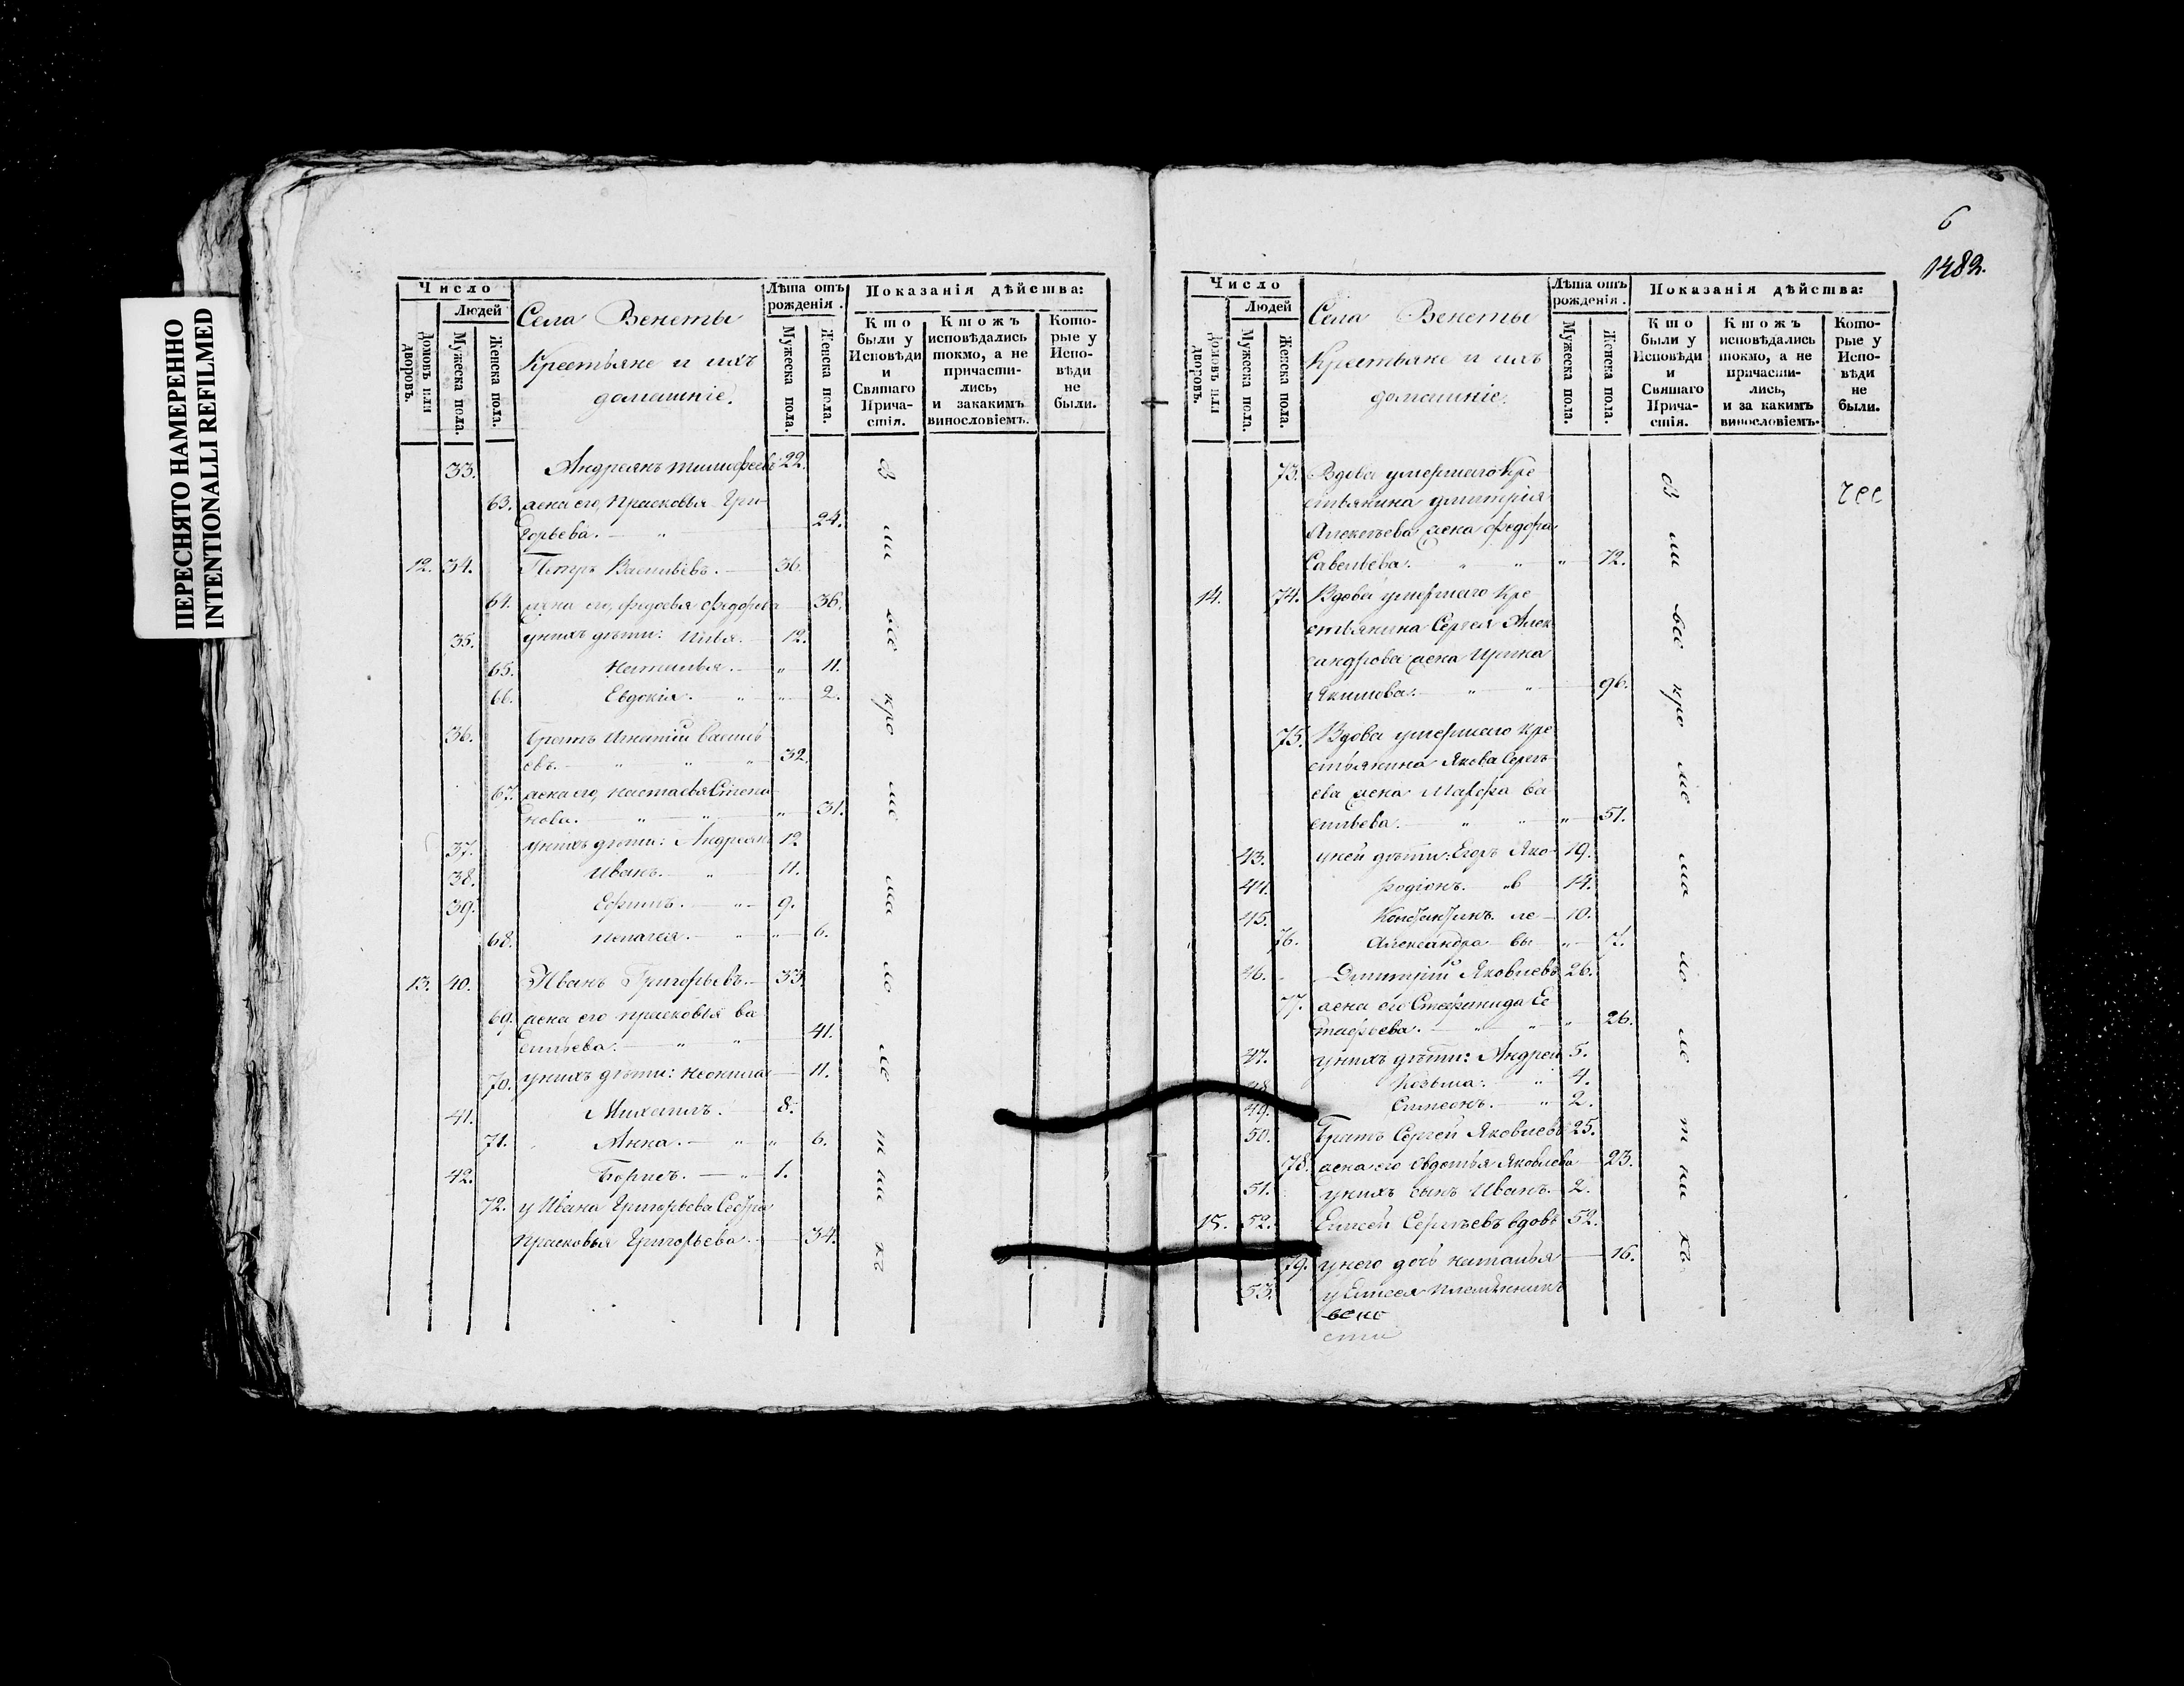 ПЕРЕСНЯТО НАМЕРЕННО
INTENTIONALLI REFILMED
Число
Людей
Домовъ или дворовъ.
Мужеска пола.
Женска пола.
Села Венеты
Крестьяне и ихъ
домашніе.
Лѣта отъ рожденія.
Мужеска пола.
Женска пола.
Показанія дѣйства:
Кто были у Исповѣди и Святаго Причастія.
Ктожъ исповѣдались токмо, а не причастились, и закакимъ винословіемъ.
Которые у Исповѣди не были.
33. Андреянъ Тимофеевъ 22.
63. жена его, Прасковья Гри-
горьева. 24.
12. 34. Петръ Васильевъ. 36.
64. жена его, Федосья Федорова 36.
35. у нихъ дѣти: Илья. 12.
65. Наталья. 11.
66. Евдокія. 2.
36. Братъ Игнатій Василь
евъ. 32.
67. жена его, Настасья Степа
нова. 31.
37. у нихъ дѣти: Андреянъ 12
38. Иванъ. 11.
39. Ефимъ. 9.
68. Пелагея. 6.
13. 40. Иванъ Григорьевъ. 33.
69. жена его Прасковья Ва
сильева. 41.
70. у нихъ дѣти: 11.
41. Михаилъ. 8.
71. Анна. 6.
42. Борисъ. 1.
72. у Ивана Григорьева Сестра
Прасковья Григорьева. 34.
6
1482.
Число
Людей
Домовъ или дворовъ.
Мужеска пола.
Женска пола.
Села Венеты
Крестьяне и ихъ
домашніе.
Лѣта отъ рожденія.
Мужеска пола.
Женска пола.
Показанія дѣйства:
Кто были у Исповѣди и Святаго Причастія.
Ктожъ исповѣдались токмо, а не причастились, и за какимъ винословіемъ.
Которые у Исповѣди не были.
73. Вдова умершаго Кре
стьянина Дмитрія
Алексѣева жена Федора
Савельева. 72.
14. 74. Вдова умершаго Кре
стьянина Сергея Алек
сандрова жена Ирина
Якимова. 96.
75. Вдова умершаго Кре
стьянина Якова Сергѣ
ева жена Марфа Ва
сильева. 51.
43. у ней дѣти: Егоръ Яко 19.
44. Родіонъ. в 14.
45. Константинъ. ле 10.
76. Александра вы 7.
46. Дмитрій Яковлевъ 26.
77. жена его Степанида Ес
тафьева. 26.
47. у нихъ дѣти: Андрей 5.
48. Козьма. 4.
49. Симеонъ. 2.
50. Братъ Сергей Яковлевъ 25.
78. жена его Евдотья Яковлева 23.
51. у нихъ сынъ Иванъ. 2.
15. 52. Елисей Сергѣевъ вдовъ 52.
79. у него дочь Наталья 16.
53. у Елисея племянникъ